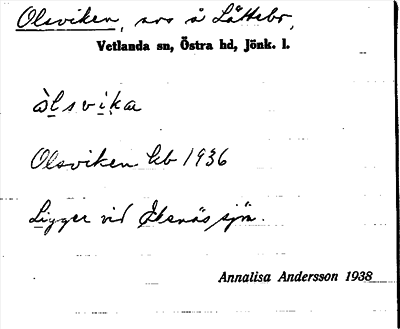 Olsviken, avs å Låttebo,
Vetlanda sn, Östra hd, Jönk. l.
ὰlsvika
Olsviken kb 1936
Ligger vid Ekenäs sjön.
Annalisa Andersson 1938